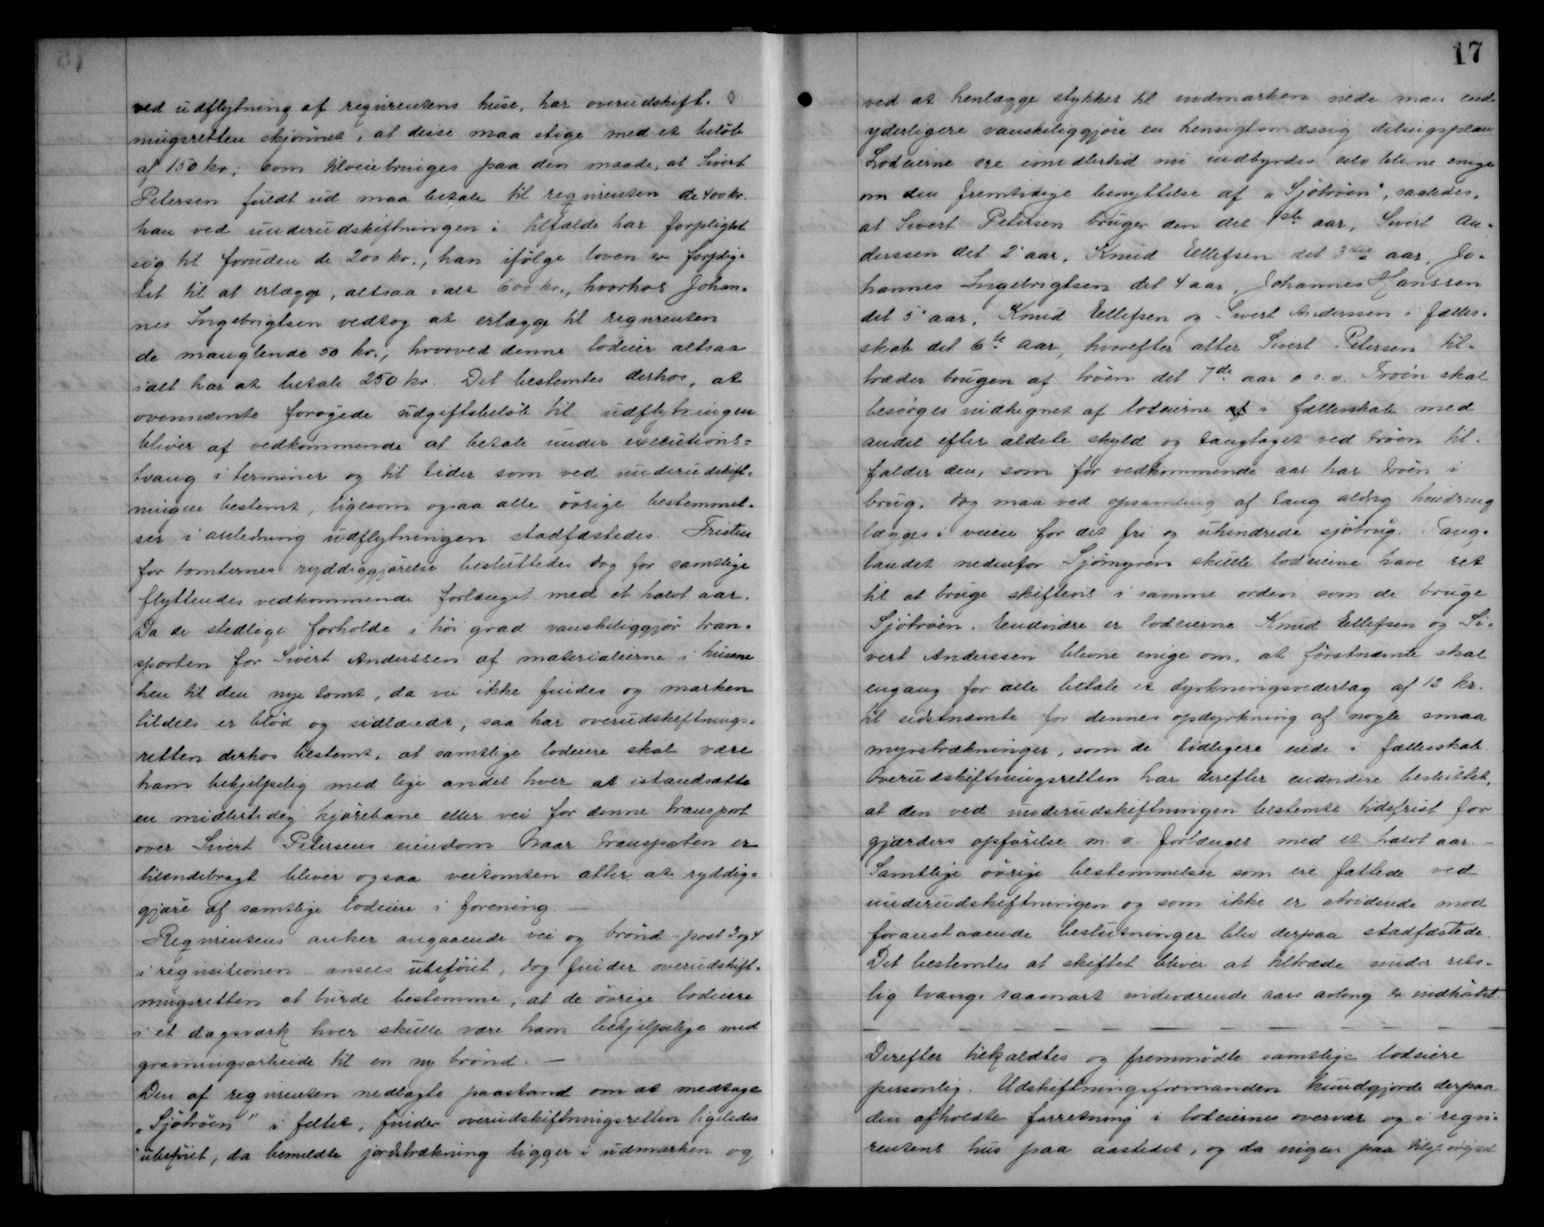 ved udflytning af reqvirentens huse, har overudskift-
ningsretten skjønnet, at disse maa stige med et beløb
af 150 kr; som tilveiebringes paa den maade, at Sivert
Petersen fuldt ud maa betale til reqvirenten de 400 kr.
han ved underudskiftningen i tilfælde har forpligtet
sig til foruden de 200 kr., han ifølge loven er forplig-
tet til at erlægge, altsaa ialt 600 kr., hvorhos Johan-
nes Ingebrigtsen vedtog at erlægge til reqvirenten
de manglende 50 kr., hvorved denne lodeier altsaa
ialt har at betale 250 kr. Det bestemtes derhos, at
ovennævnte forøgede udgiftsbeløb til udflytningen
bliver af vedkommende at betale under executions-
tvang i terminer og til tider som ved underudskift-
ningen bestemt, ligesom ogsaa alle øvrige bestemmel-
ser i anledning udflytningen stadfæstedes. Fristen
for tomternes ryddiggjørelse besluttedes dog for samtlige
flyttendes vedkommende forlænget med et halvt aar.
Da de stedlige forholde i høi grad vanskeliggjør tran-
sporten for Sivert Anderssen af materialierne i husene
hen til den nye tomt, da vei ikke findes og marken
tildels er blød og sidlændt, saa har overudskiftnings-
retten derhos bestemt, at samtlige lodeiere skal være
ham behjelpelig med lige andel hver at istandsætte
en midlertidig kjørebane eller vei for denne transport
over Sivert Petersens eiendom. Naar transporten er
tilendebragt bliver ogsaa veitomten atter at ryddig-
gjøre af samtlige lodeiere i forening. —
Reqvirentens anker angaaende vei og brønd – post 3 og 4
i reqvisitionen – ansees ubeføiet, dog finder overudskift-
ningsretten at burde bestemme, at de øvrige lodeiere
i et dagsværk hver skulle være ham behjelpelige med
gravningsarbeide til en ny brønd. —
Den af reqvirenten nedlagte paastand om at medtage
"Sjøtrøen" i feltet, finder overudskiftningsretten ligeledes
ubeføiet, da bemeldte jordstrækning ligger i udmarken og
17
ved at henlægge stykket til indmarken vilde man end
yderligere vanskeliggjøre en hensigtsmæssig delingsplan
Lodeierne ere imidlertid nu indbyrdes selv blevne enige
om den fremtidige benyttelse af "Sjøtrøen", saaledes,
at Sivert Petersen bruger den det 1ste aar, Sivert An-
derssen det 2' aar, Knud Ellefsen det 3die aar, Jo-
hannes Ingebrigtsen det 4 aar, Johannes Hanssen
det 5' aar, Knud Ellefsen og Sivert Anderssen i fælles-
skab det 6te aar, hvorefter atter Sivert Petersen til-
træder brugen af trøen det 7de aar o. s. v. Trøen skal
besørges indhegnet af lodeierne i fællesskab med
andel efter ældste skyld og tangtaget ved trøen til-
falder den, som for vedkommende aar har trøen i
brug, dog maa ved opsamling af tang aldrig hindring
lægges i veien for det fri og uhindrede sjøbrug. Tang-
landet nedenfor Sjømyren skulle lodeierne have ret
til at bruge skiftevis i samme orden som de bruge
Sjøtrøen. Endvidre er lodeierne Knud Ellefsen og Si-
vert Anderssen blevne enige om, at førstnævnte skal
engang for alle betale et dyrkningsvederlag af 12 kr.
til sidstnævnte for dennes opdyrkning af nogle smaa
myrstrækninger, som de tidligere eiede i fællesskab.
Overudskiftningsretten har derefter endvidere besluttet,
at den ved underudskiftningen bestemte tidsfrist for
gjærders opførelse m. v. forlænges med et halvt aar. —
Samtlige øvrige bestemmelser som ere fattede ved
underudskiftningen og som ikke er stridende mod
foranstaaende beslutninger blev derpaa stadfæstede.
Det bestemtes at skiftet bliver at tiltræde under rets-
lig tvang saasnart indeværende aars avling er indhøstet.
Derefter tilkaldtes og fremmødte samtlige lodeiere
personlig. Udskiftningsformanden kundgjorde derpaa
den afholdte forretning i lodeiernes overvær og i reqvi-
rentens hus paa aastedet, og da ingen paa tilspørgsel